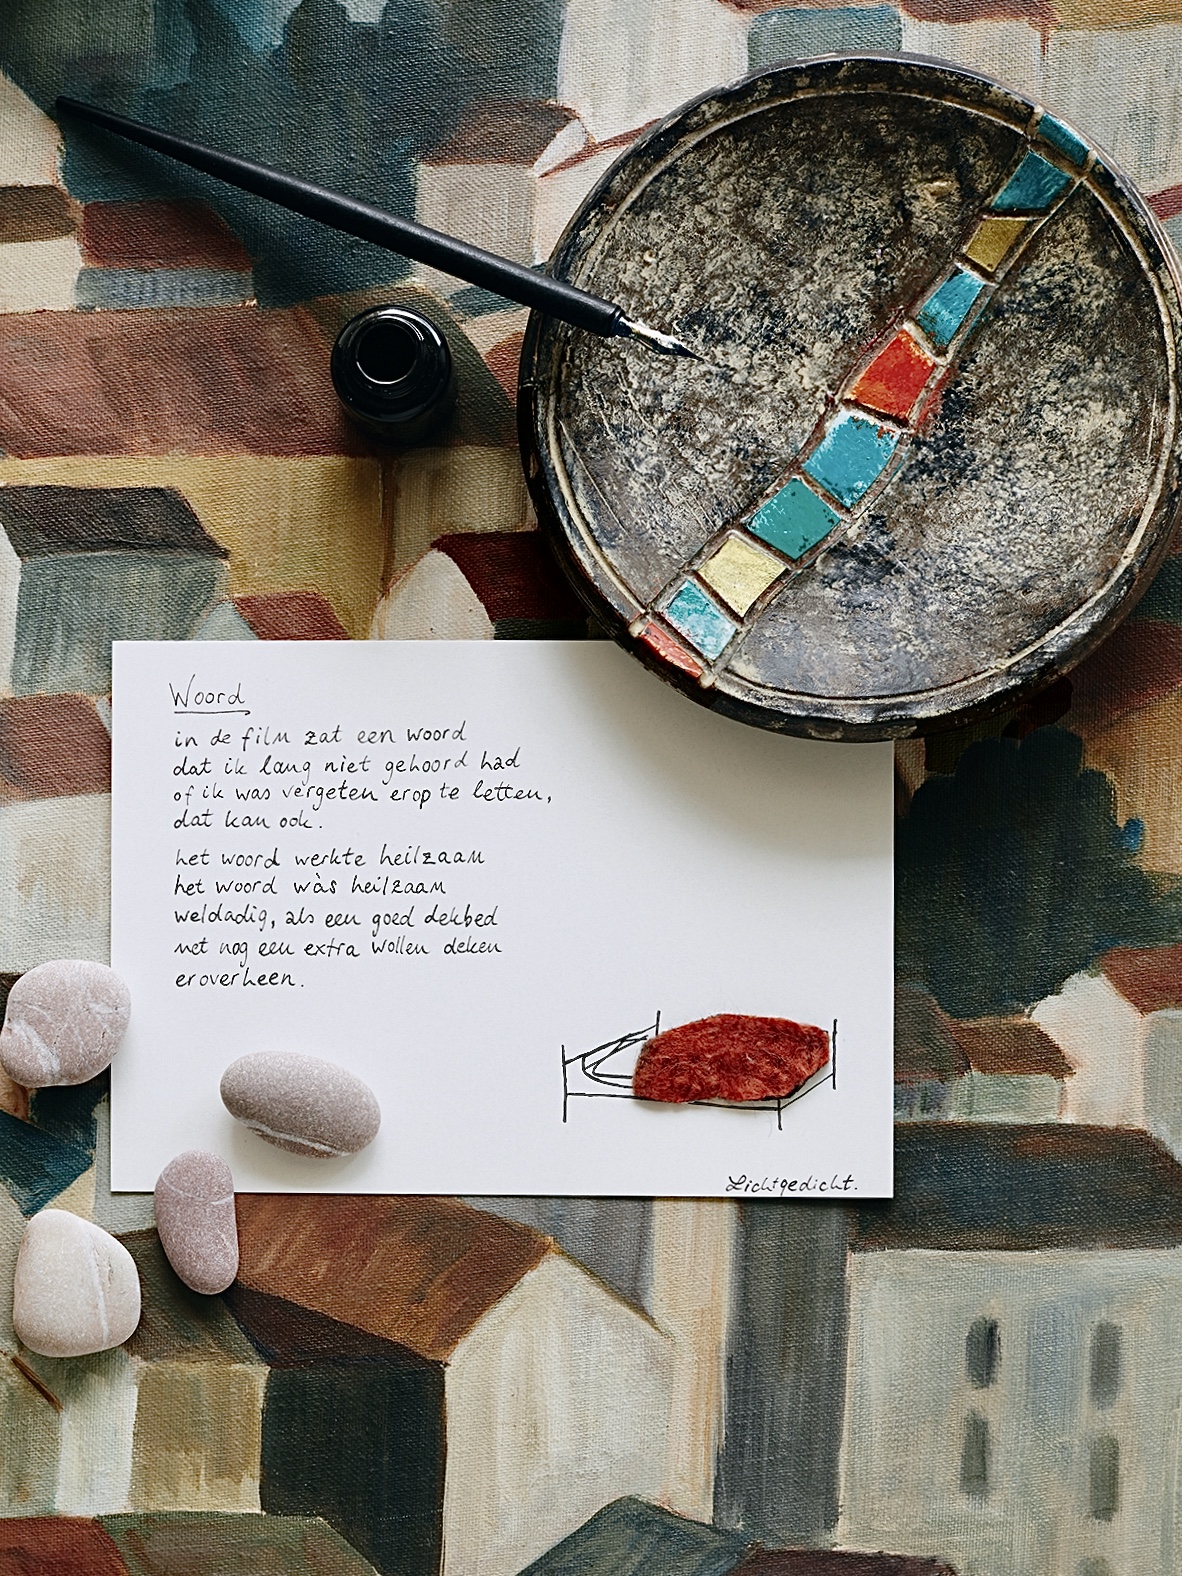 Woord
in de film zat een woord
dat ik lang niet gehoord had
of ik was vergeten erop te letten,
dat kan ook.
het woord werkte heilzaam
het woord wàs heilzaam
weldadig, als een goed dekbed
met nog een extra wollen deken
eroverheen.
Lichtgedicht.